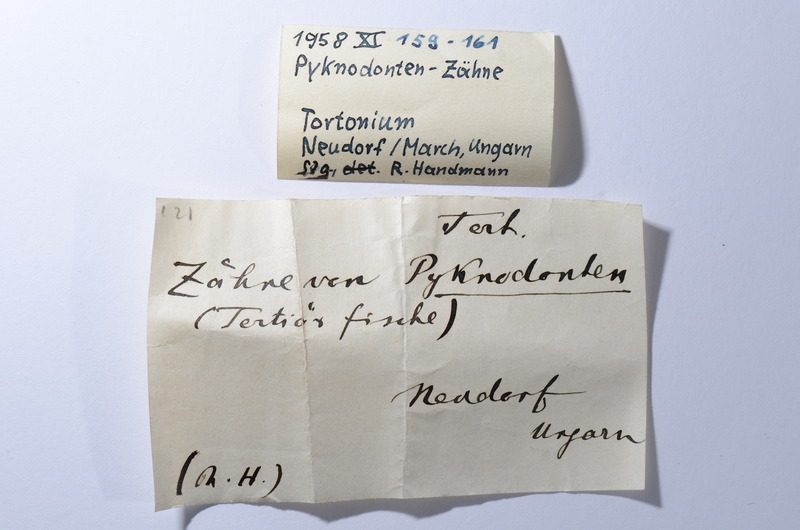 1958 XI 159 - 161
Pyknodonten - Zähne
Tortonium
Neudorf / March, Ungarn
Slg., det. R. Handmann
121
Tert.
Zähne von Pyknodonten
(Tertiär fische)
Neudorf
Ungarn
(R. H.)